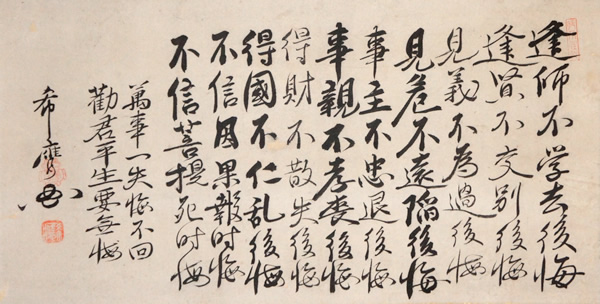 逢師不学去後悔
逢賢不交別後悔
見義不為過後悔
見危不遠陥後悔
事主不忠退後悔
事親不孝喪後悔
得財不散失後悔
得國不仁乱後悔
不信因果報時悔
不信菩提死时悔
萬事一失悔不回
勸君平生要無悔
希膺